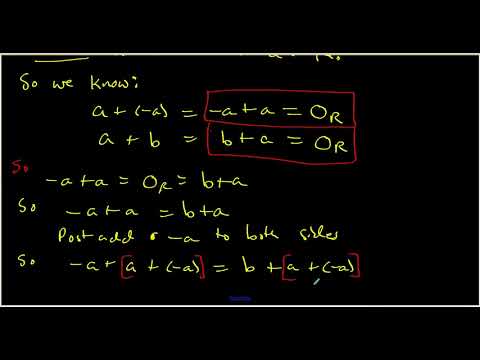 So we know:
a + (-a) = -a + a = 0R
a + b = b + a = 0R
So
-a + a = 0R = b + a
So -a + a = b + a
Post add -a to both sides
So -a + [a + (-a)] = b + [a + (-a)]